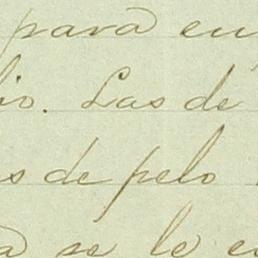 para en
lio. Las de
s de pelo
a se le e